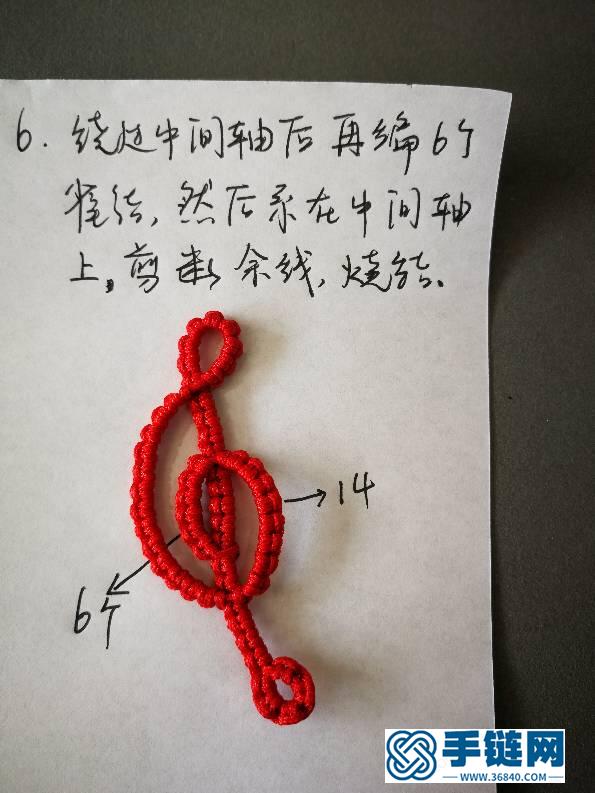 6. 绕过中间轴后再编6个
雀结,然后系在中间轴
上,剪断余线,烧结.
14
6个
手链网
WWW.36840.COM